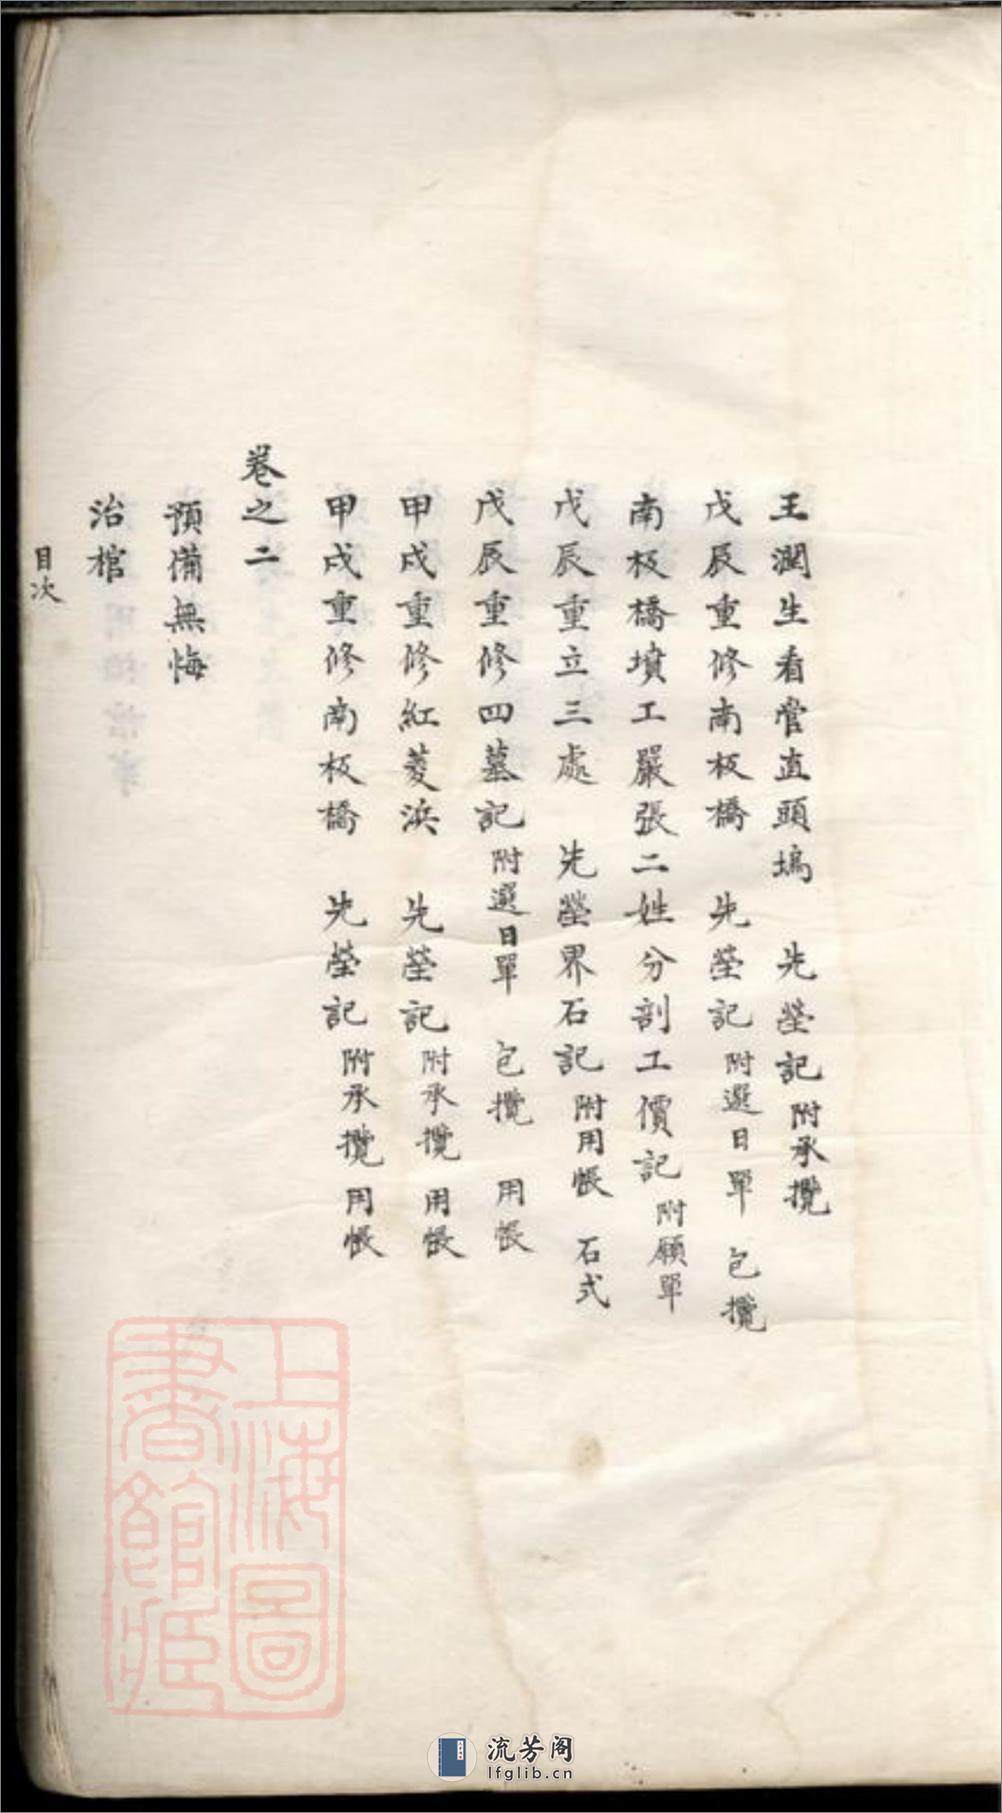 王潤生看管直頭塢　先塋記 附承攬
戊辰重修南板橋　先塋記 附選日單　包攬
南板橋墳工嚴張二姓分剖工價記 附願單
戊辰重立三處　先塋界石記 附用帳　石式
戊辰重修四墓記 附選日單　包攬　用帳
甲戌重修紅菱浜　先塋記 附承攬　用帳
甲戌重修南板橋　先塋記 附承攬　用帳
卷之二
預備無悔
治棺
目次
上海圖
書館藏
流芳阁
lfglib.cn